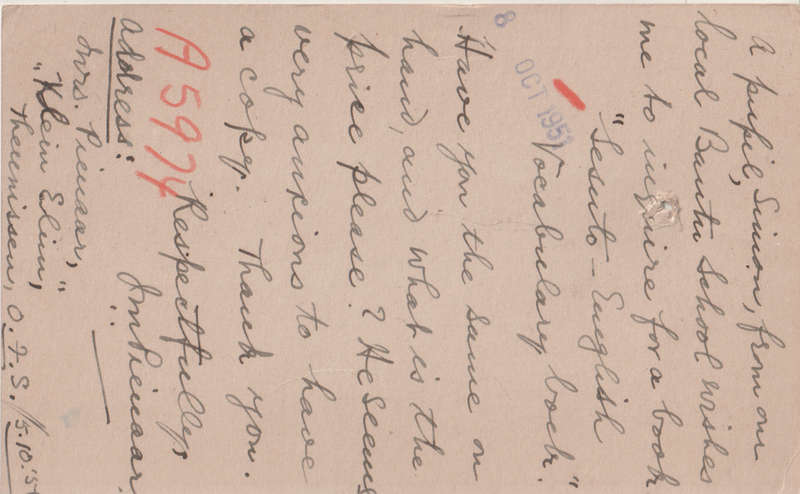 a pupil, Simon, from our
local Bantu School wishes
me to inquire for a book
"Sesuto - English
Vocabulary book."
Have you the same on
hand, and what is the
price please? He seems
very anxious to have
a copy. Thank you.
Respectfully,
address:
Mrs. Pienaar,
"Klein Elim,"
Theunissen, O.F.S.
A5974
8 OCT 195